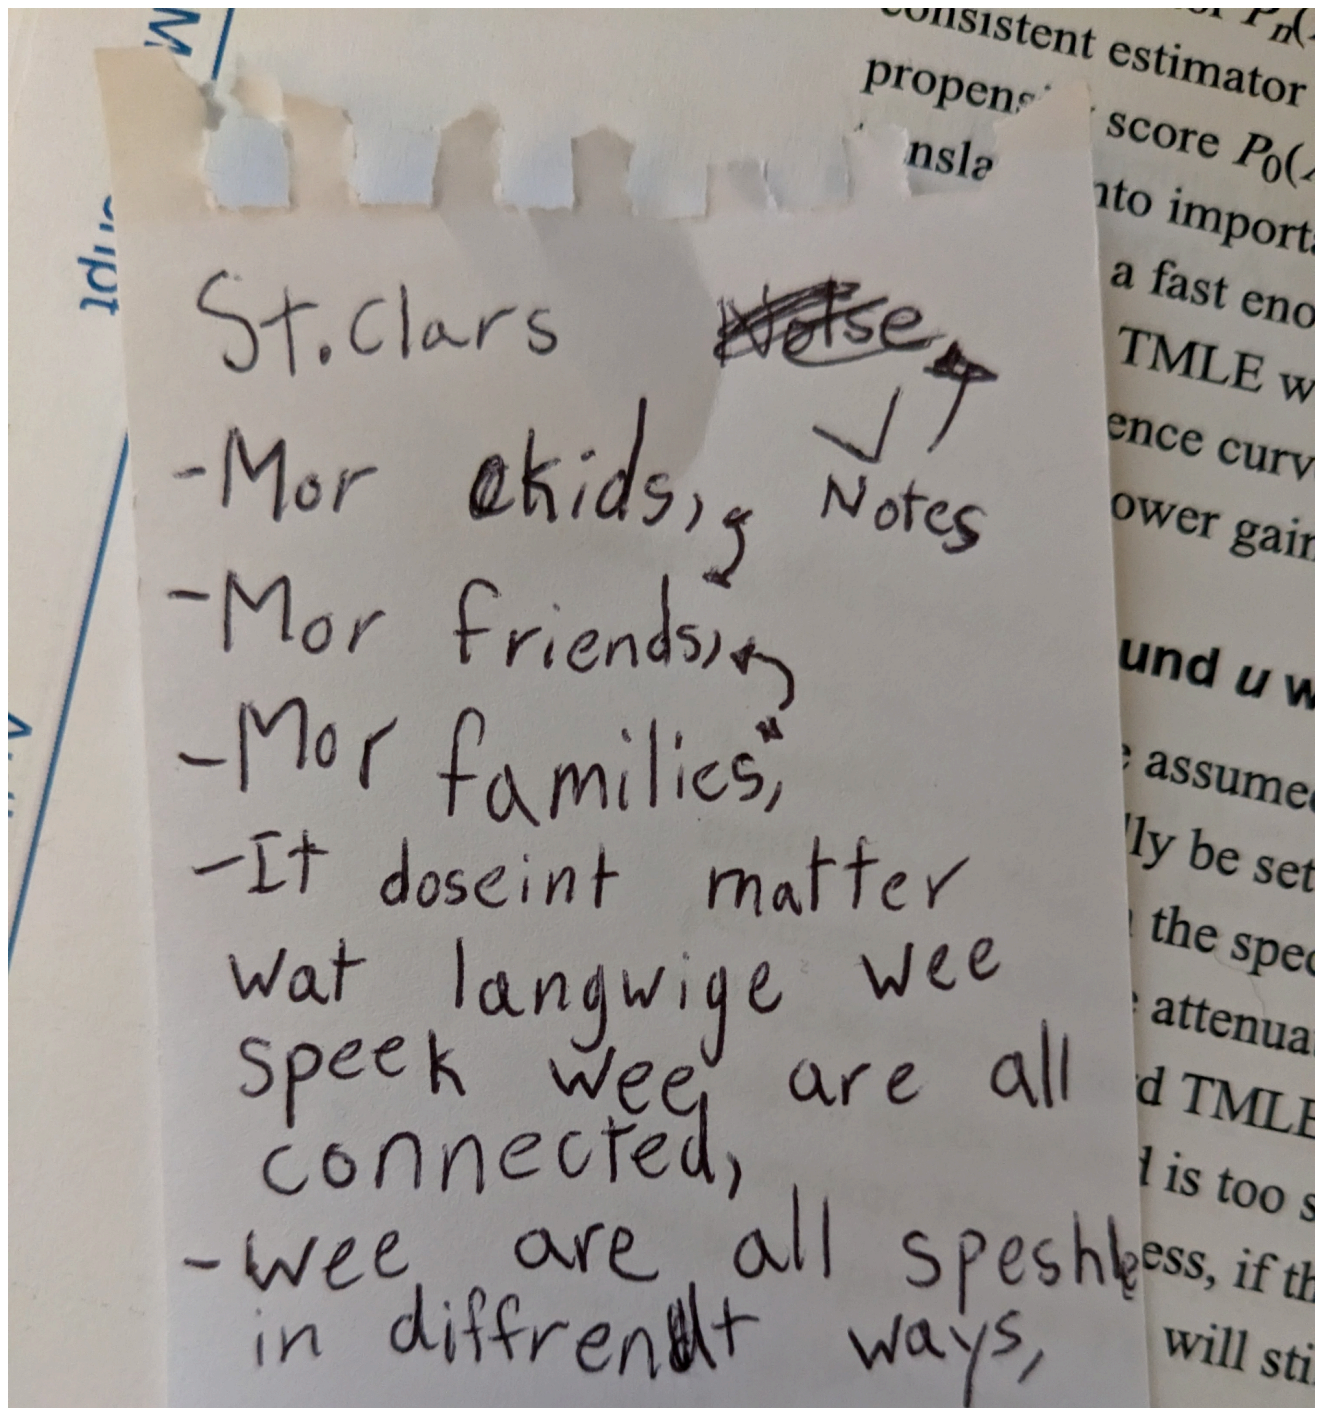 St. Clars
Notes
-Mor kids,
-Mor friends,
-Mor families,
-It doseint matter
wat langwige wee
speek wee are all
connected,
-wee are all speshle
in diffrent ways,
consistent estimator
score P0(
import
a fast
TMLE
ence curv
ower gain
und u w
assume
ly be set
the spec
attenua
d TMLE
is too s
ess, if th
will sti